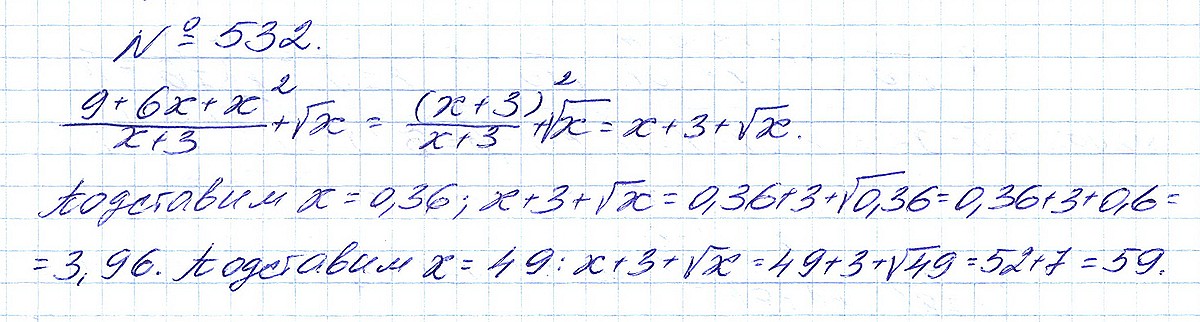 № 532.
(9+6x+x²)/(x+3) + √x = (x+3)²/(x+3) + √x = x+3+√x.
Подставим x = 0,36; x+3+√x = 0,36+3+√0,36 = 0,36+3+0,6 =
= 3,96. Подставим x = 49: x+3+√x = 49+3+√49 = 52+7 = 59.